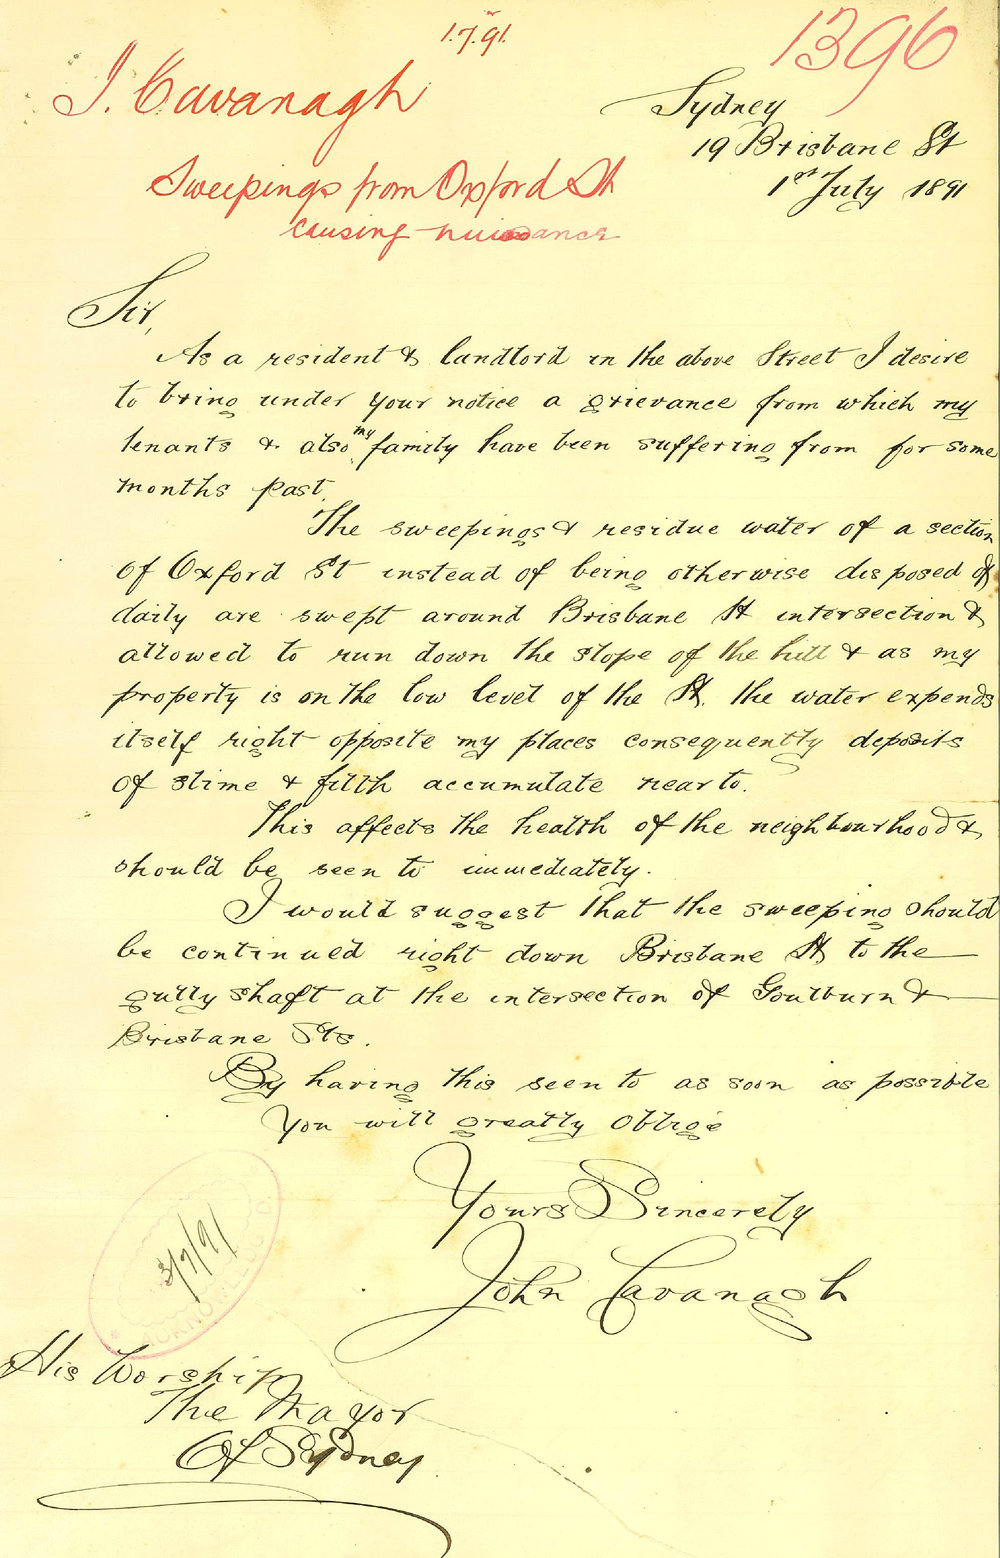 1.7.91.
1396
J. Cavanagh
Sweepings from Oxford St
causing nuisance
Sydney
19 Brisbane St
1st July 1891
Sir,
As a resident & landlord in the above Street I desire
to bring under your notice a grievance from which my
tenants & also my family have been suffering from for some
months past.
The sweepings & residue water of a section
of Oxford St instead of being otherwise disposed of
daily are swept around Brisbane St intersection &
allowed to run down the slope of the hill & as my
property is on the low level of the St. the water expends
itself right opposite my places consequently deposits
of slime & filth accumulate near to.
This affects the health of the neighbourhood &
should be seen to immediately.
I would suggest that the sweeping should
be continued right down Brisbane St to the
gully shaft at the intersection of Goulburn &
Brisbane Sts.
By having this seen to as soon as possible
you will greatly oblige
Yours Sincerely
John Cavanagh
3/7/91
ACKNOWLEDGED
His Worship
The Mayor
Of Sydney